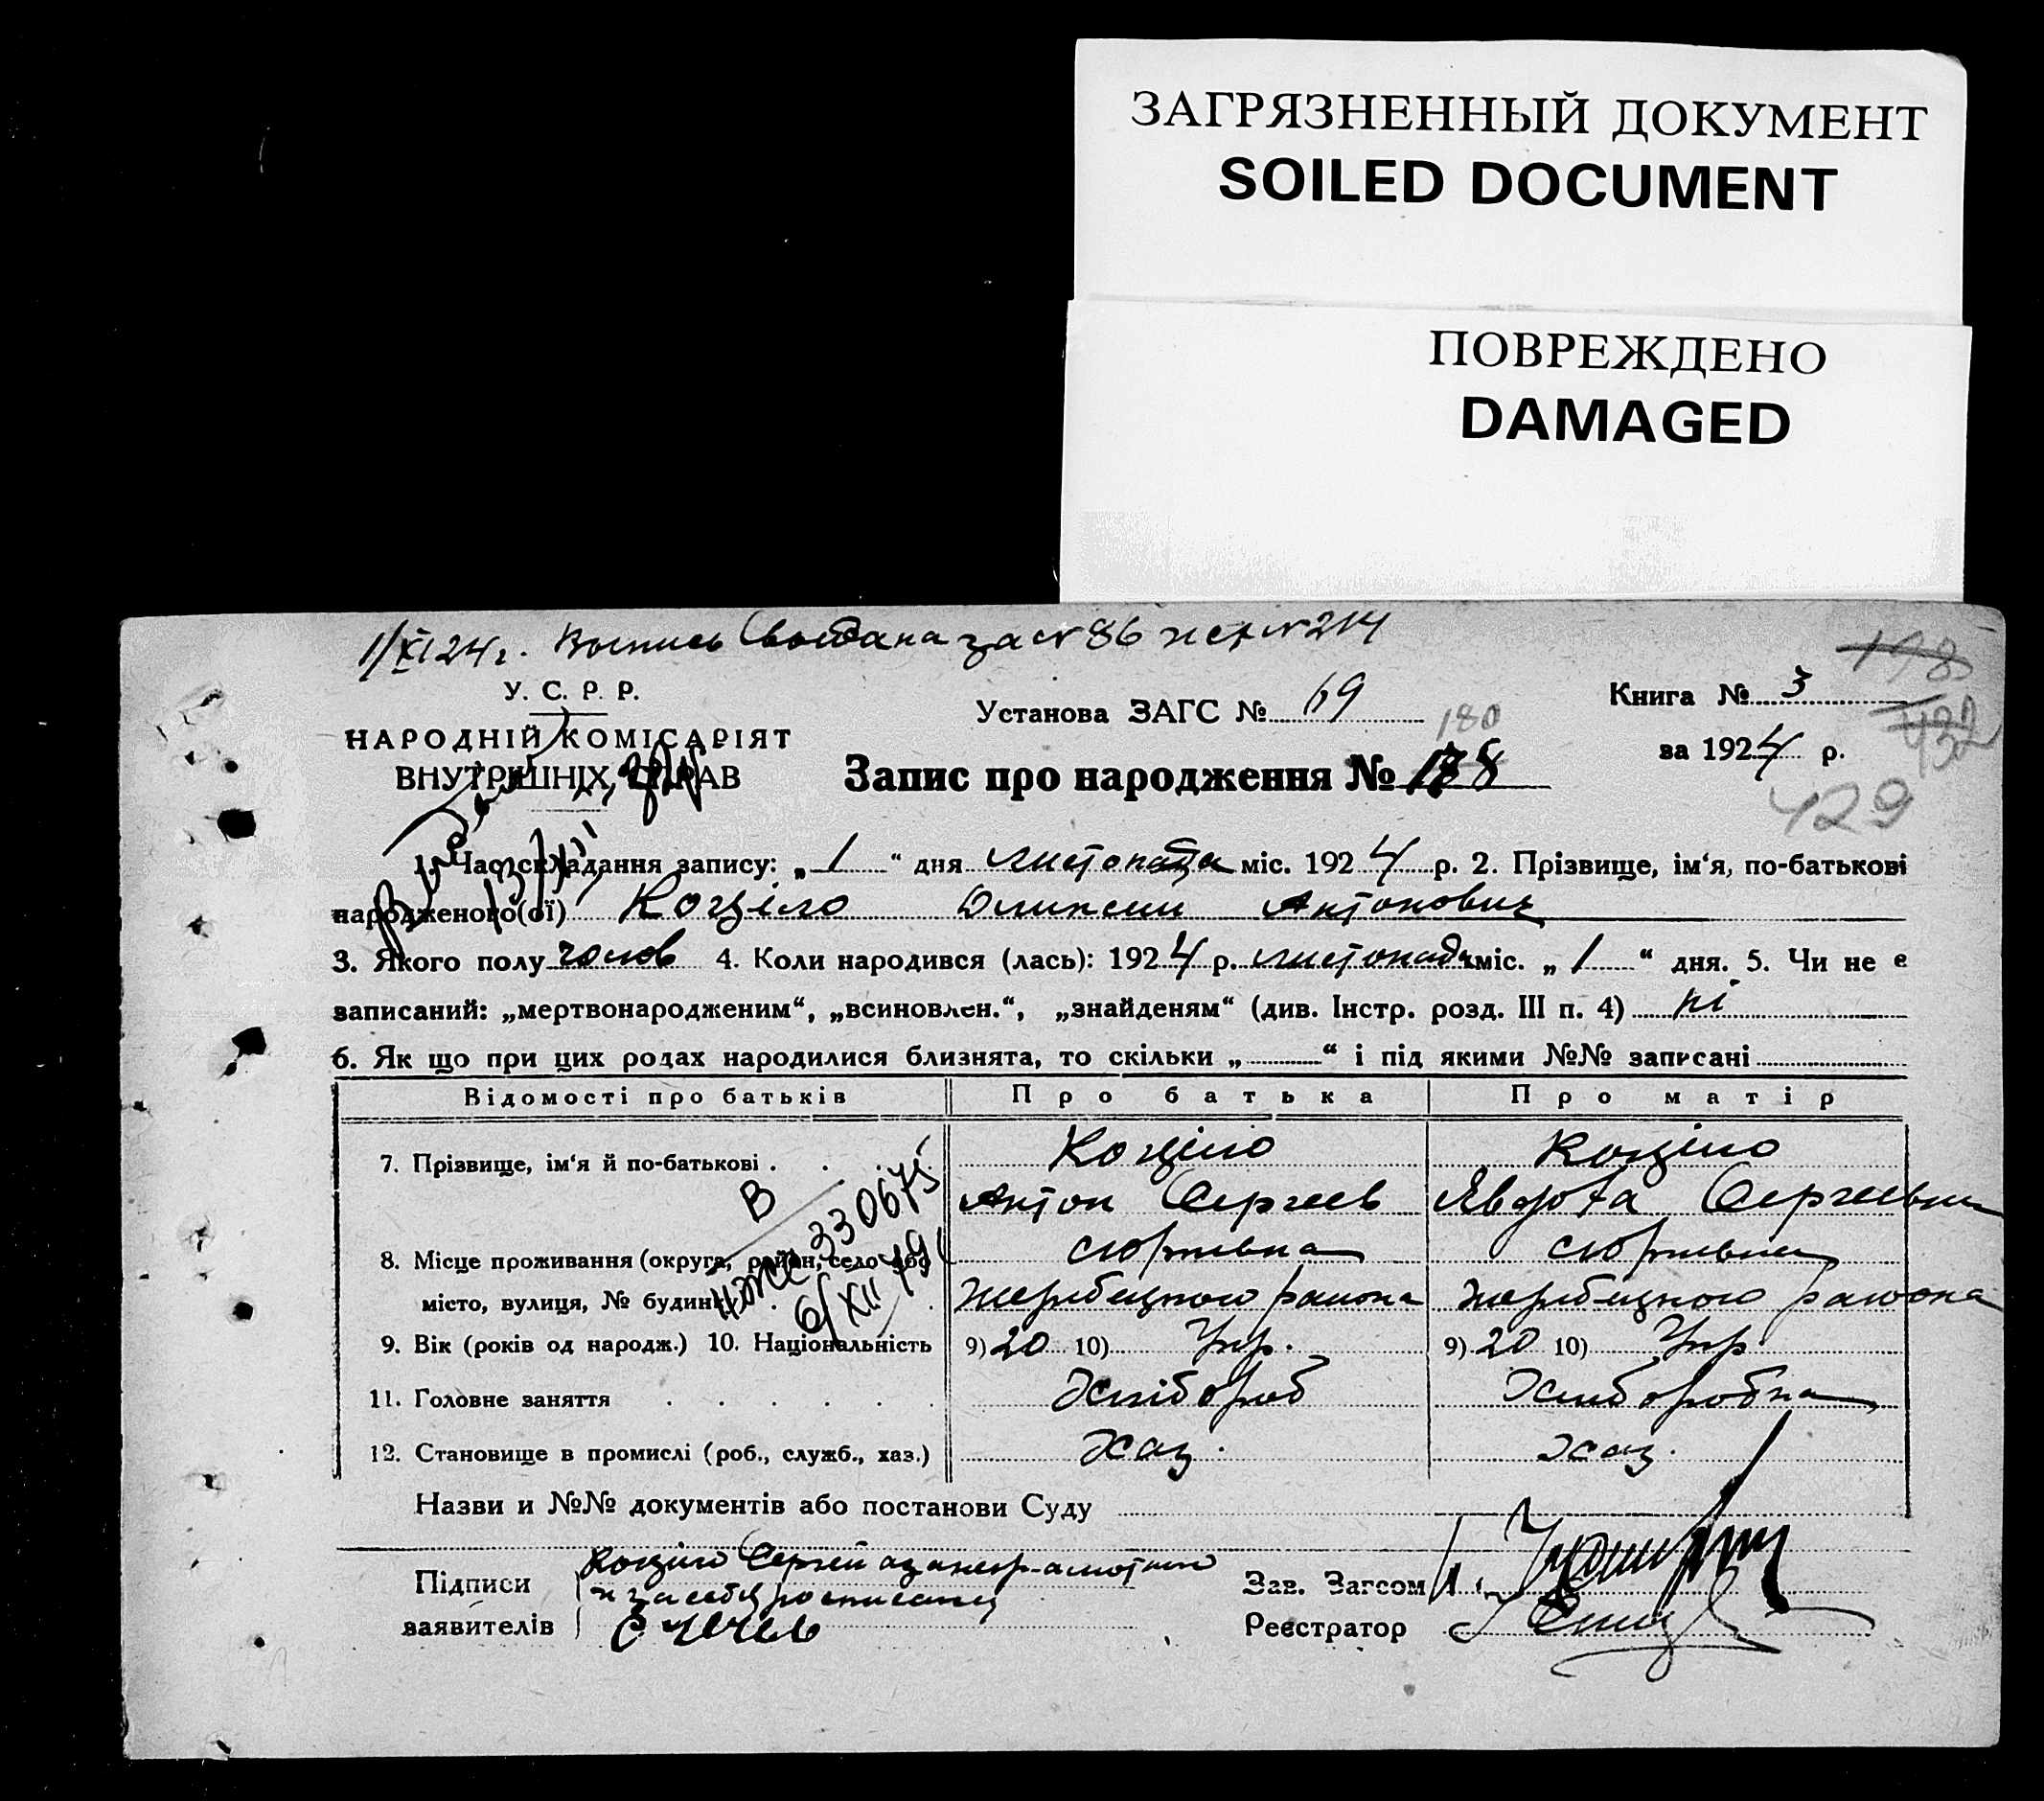 ЗАГРЯЗНЕННЫЙ ДОКУМЕНТ
SOILED DOCUMENT
ПОВРЕЖДЕНО
DAMAGED
1/XI 24 г. за № 86 № 214
У. С. Р. Р.
НАРОДНІЙ КОМІСАРІЯТ
ВНУТРІШНІХ СПРАВ
Установа ЗАГС № 69
Книга № 3
за 1924 р.
198
432
429
180
Запис про народження № 178
1. Час складання запису: „ 1 “ дня листопада міс. 1924 р. 2. Прізвище, ім‘я, по-батькові
народженого(ої) Коціло Олексій Антонович
3. Якого полу чолов 4. Коли народився (лась): 1924 р. листопада міс. „ 1 “ дня. 5. Чи не є
записаний: „мертвонародженим“, „всиновлен.“, „знайденям“ (див. Інстр. розд. III п. 4) ні
6. Як що при цих родах народилися близнята, то скільки „ “ і під якими №№ записані
Відомості про батьків Про батька Про матір
7. Прізвище, ім‘я й по-батькові . Коціло Коціло
Антон Сергеев Сергеевна
8. Місце проживання (округа, район, село або
місто, вулиця, № будинку) района района
В
330675
6/XII 79
9. Вік (років од народж.) 10. Національність 9) 20 10) Укр. 9) 20 10) Укр
11. Головне заняття Хлібороб Хліборобка
12. Становище в промислі (роб., служб., хаз.) Хаз. Хаз.
Назви и №№ документів або постанови Суду
Підписи Коціло Сергей
заявителів
Зав. Загсом
Реєстратор